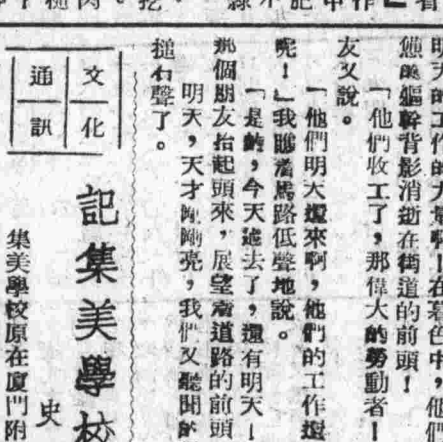 明天的工作的
在暮色中，他們
的軀幹背影消逝在街道的前頭！
「他們收工了，那偉大的勞動者！
友又說。
「他們明天還來啊，他們的工作還
呢！」我瞧着馬路低聲地說。
「是的，今天過去了，還有明天！
那個朋友抬起頭來，展望着道路的前頭
明天，天才剛剛亮，我們又聽聞的
搥石聲了。
文化
通訊
記集美學校
史
集美學校原在廈門附